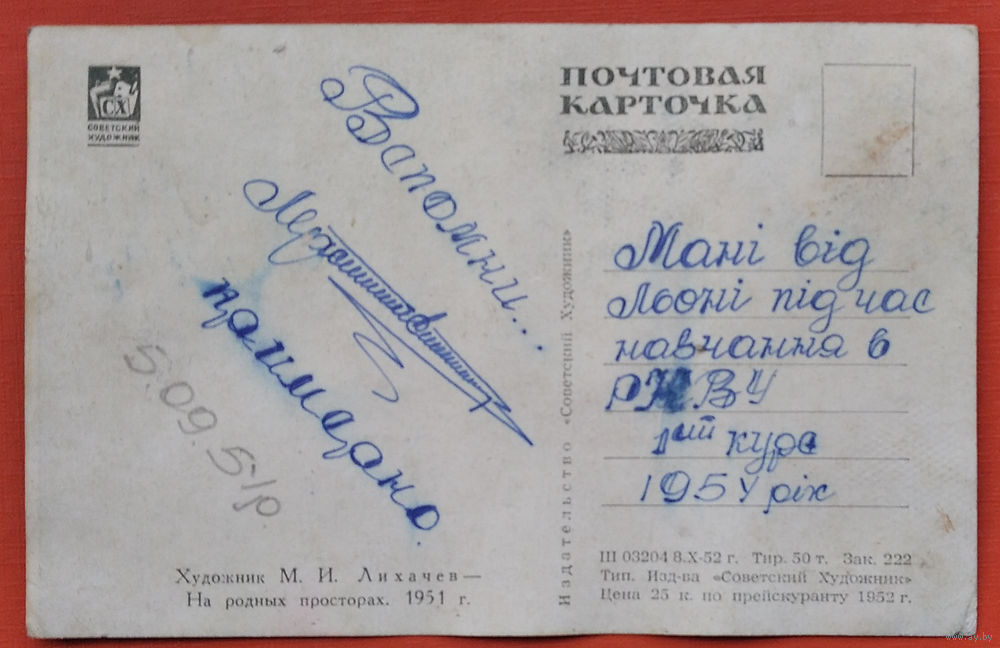 СХ
СОВЕТСКИЙ
ХУДОЖНИК
Вспомни...
5.09.51р.
Художник М. И. Лихачев—
На родных просторах. 1951 г.
Издательство «Советский Художник»
ПОЧТОВАЯ
КАРТОЧКА
Мані від
Льоні під час
навчання в
РКВУ
1ший курс
1954 ріх
Ш 03204 8.X-52 г. Тир. 50 т. Зак. 222
Тип. Изд-ва «Советский Художник»
Цена 25 к. по прейскуранту 1952 г.
www.ay.by